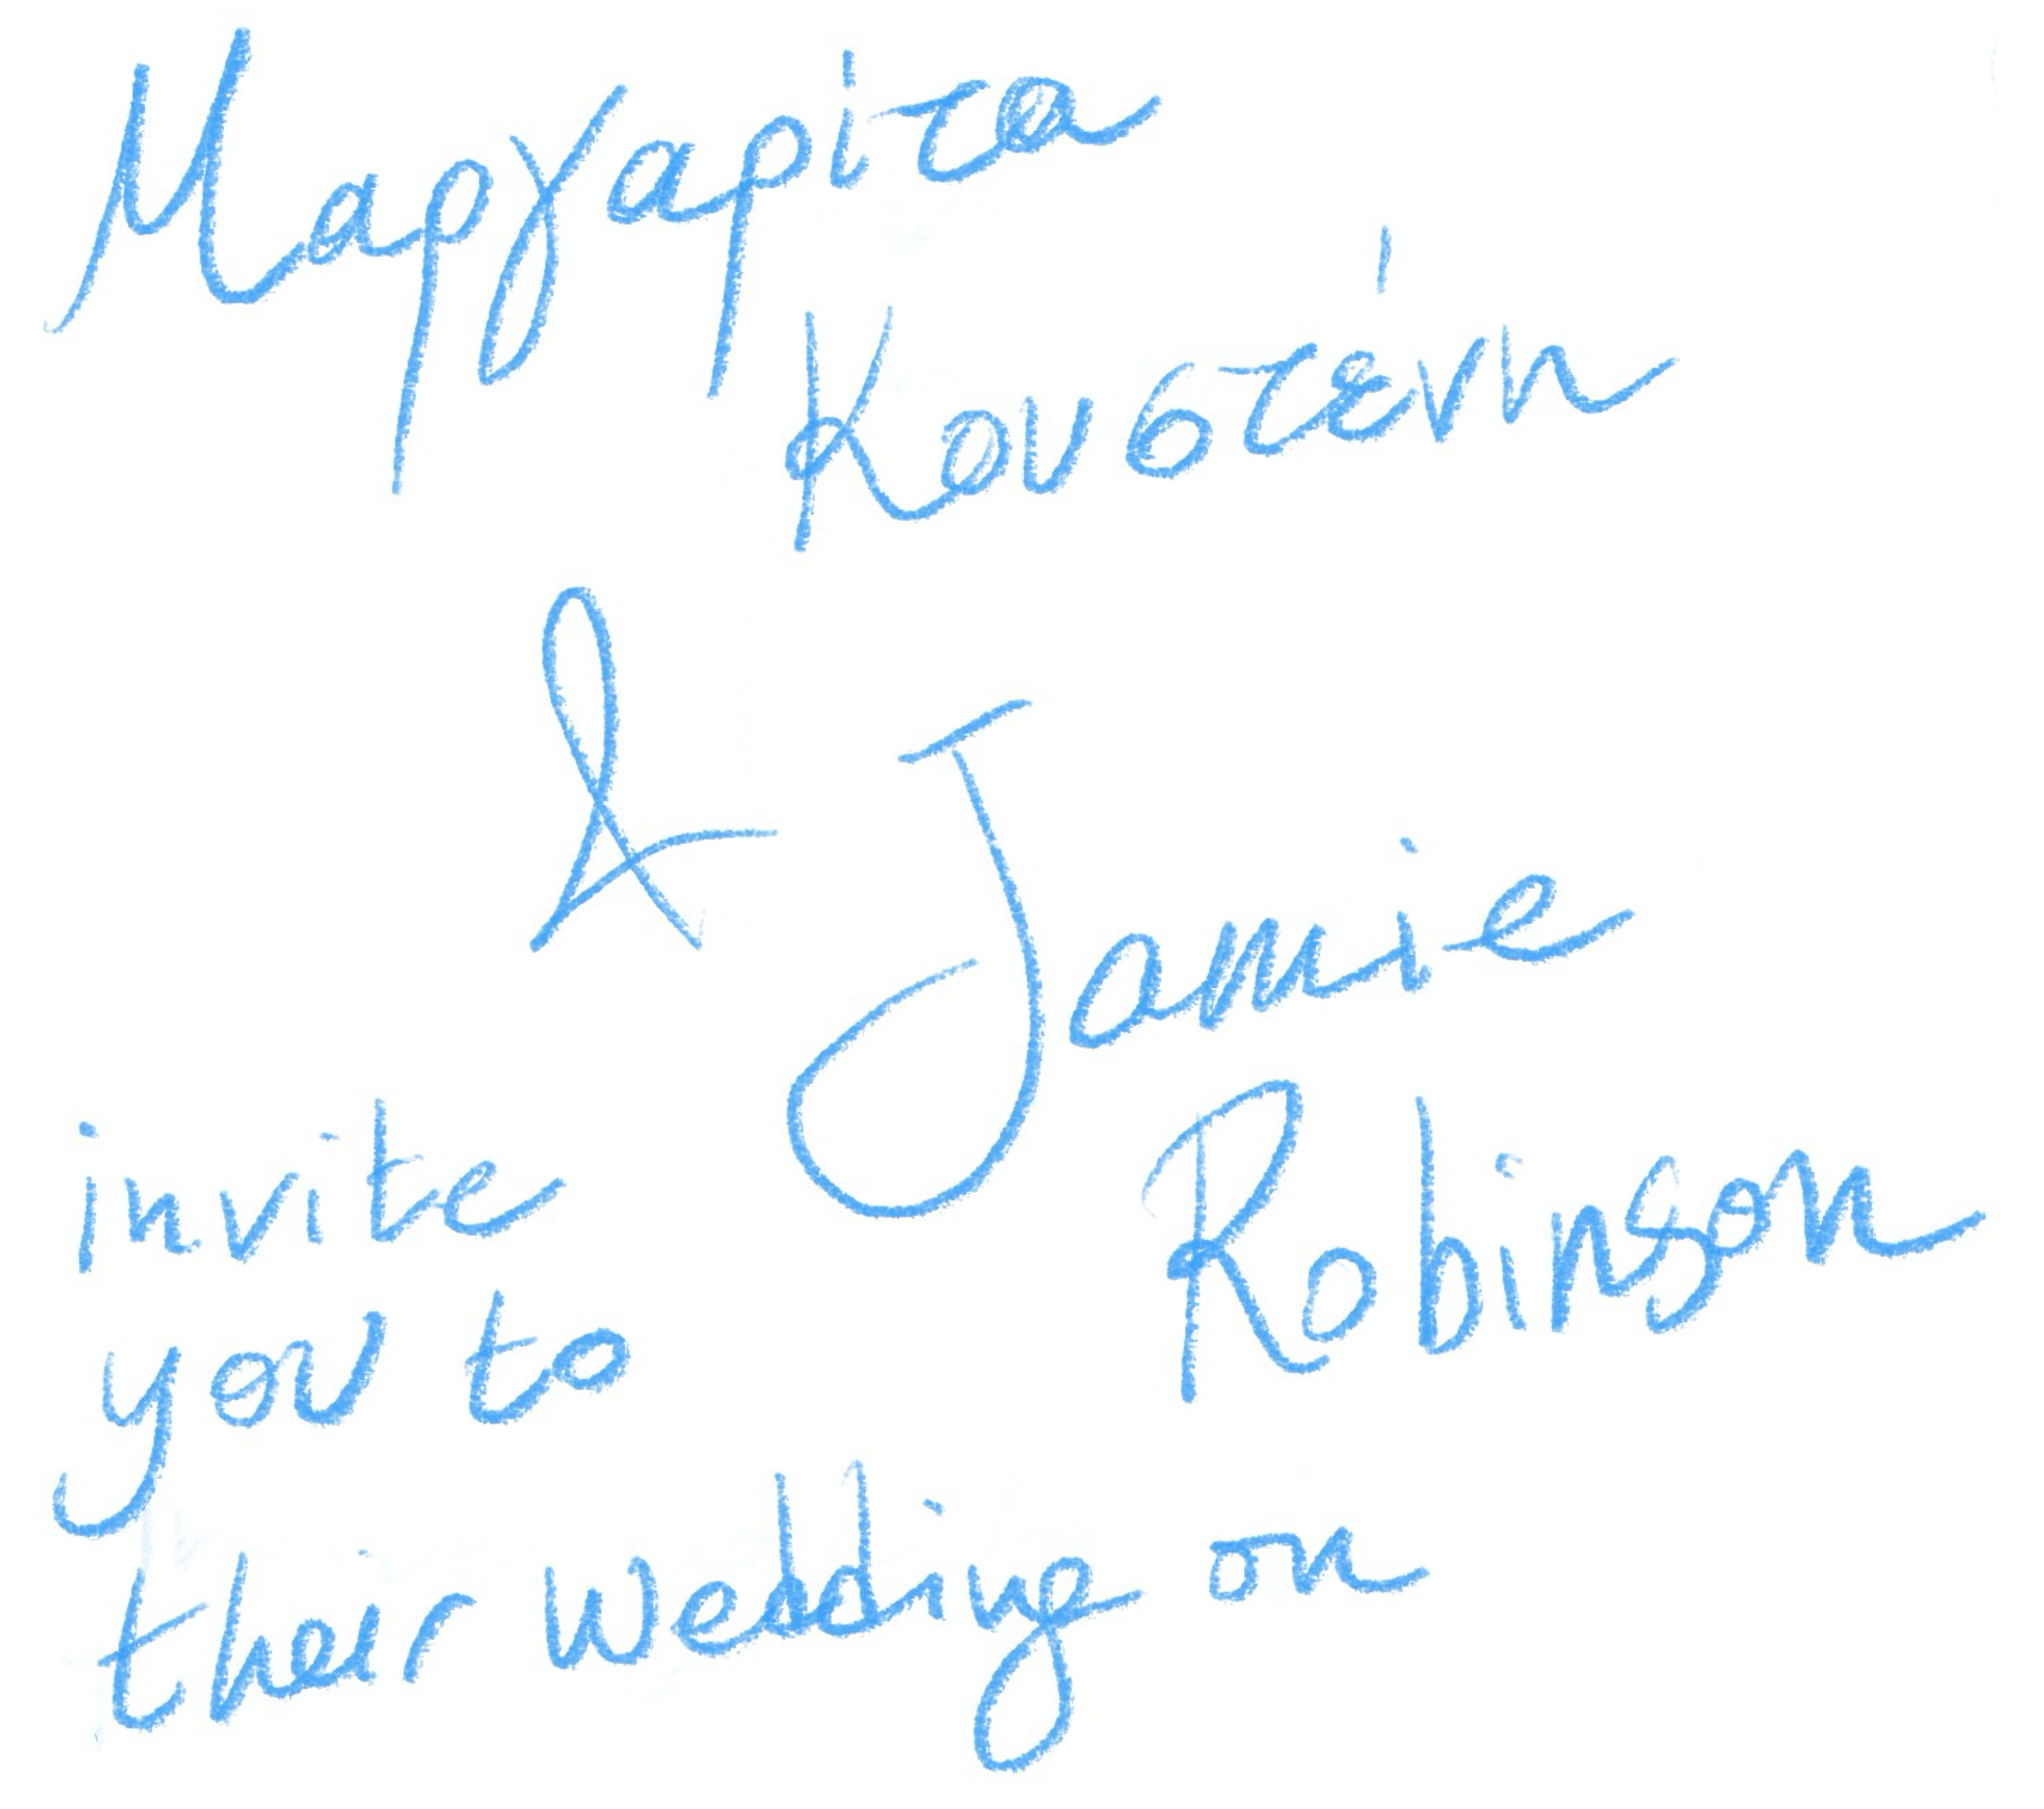 Μαργαρίτα
Κουστένη
& Jamie
Robinson
invite
you to
their wedding on